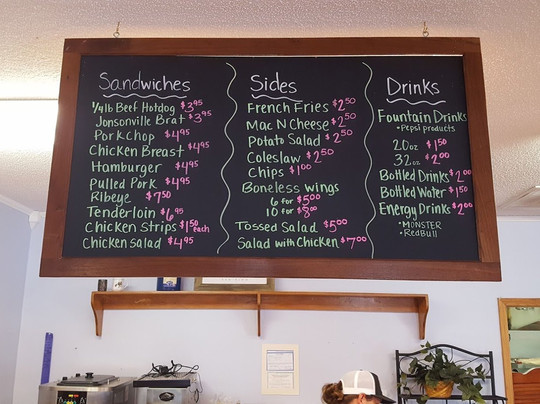 Sandwiches
1/4 lb Beef Hotdog $3.95
Jonsonville Brat $3.95
Pork Chop $4.95
Chicken Breast $4.95
Hamburger $4.95
Pulled Pork $4.95
Ribeye $7.50
Tenderloin $6.95
Chicken Strips $1.50 each
Chicken Salad $4.95
Sides
French Fries $2.50
Mac N Cheese $2.50
Potato Salad $2.50
Coleslaw $2.50
Chips $1.00
Boneless wings
6 for $5.00
10 for $8.00
Tossed Salad $5.00
Salad with Chicken $7.00
Drinks
Fountain Drinks
• Pepsi products
20oz $1.50
32oz $2.00
Bottled Drinks $2.00
Bottled Water $1.50
Energy Drinks $2.00
• MONSTER
• RedBull